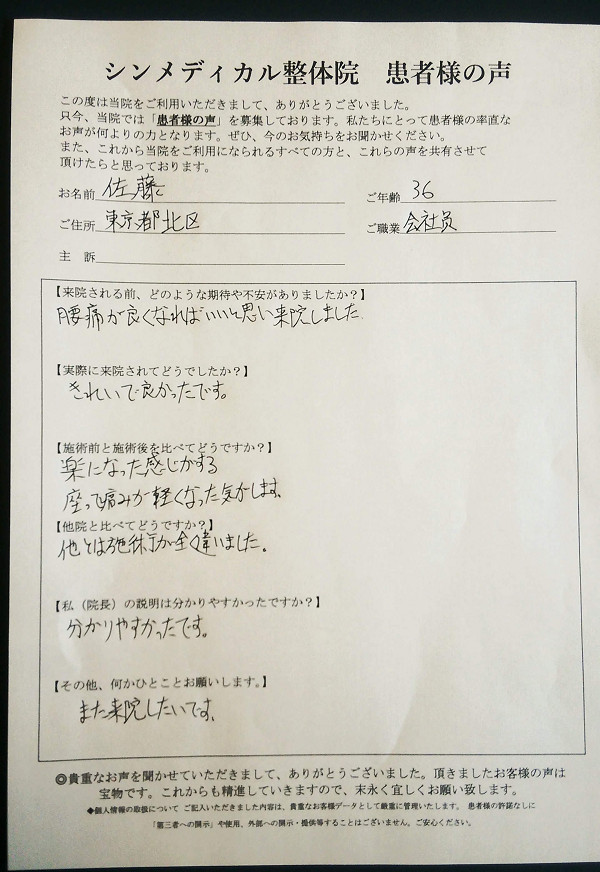 シンメディカル整体院　患者様の声
この度は当院をご利用いただきまして、ありがとうございました。
只今、当院では「患者様の声」を募集しております。私たちにとって患者様の率直な
お声が何よりの力となります。ぜひ、今のお気持ちをお聞かせください。
また、これから当院をご利用になられるすべての方と、これらの声を共有させて
頂けたらと思っております。
お名前 佐藤 ご年齢 36
ご住所 東京都北区 ご職業 会社員
主　訴
【来院される前、どのような期待や不安がありましたか？】
腰痛が良くなればいいと思い来院しました
【実際に来院されてどうでしたか？】
きれいで良かったです。
【施術前と施術後を比べてどうですか？】
楽になった感じがする
座って痛みが軽くなった気がします。
【他院と比べてどうですか？】
他とは施術が全く違いました。
【私（院長）の説明は分かりやすかったですか？】
分かりやすかったです。
【その他、何かひとことお願いします。】
また来院したいです。
◎貴重なお声を聞かせていただきまして、ありがとうございました。頂きましたお客様の声は
宝物です。これからも精進していきますので、末永く宜しくお願い致します。
◆個人情報の取扱について ご記入いただきました内容は、貴重なお客様データとして厳重に管理いたします。 患者様の許諾なしに
「第三者への開示」や使用、外部への開示・提供等することはございません。ご安心ください。